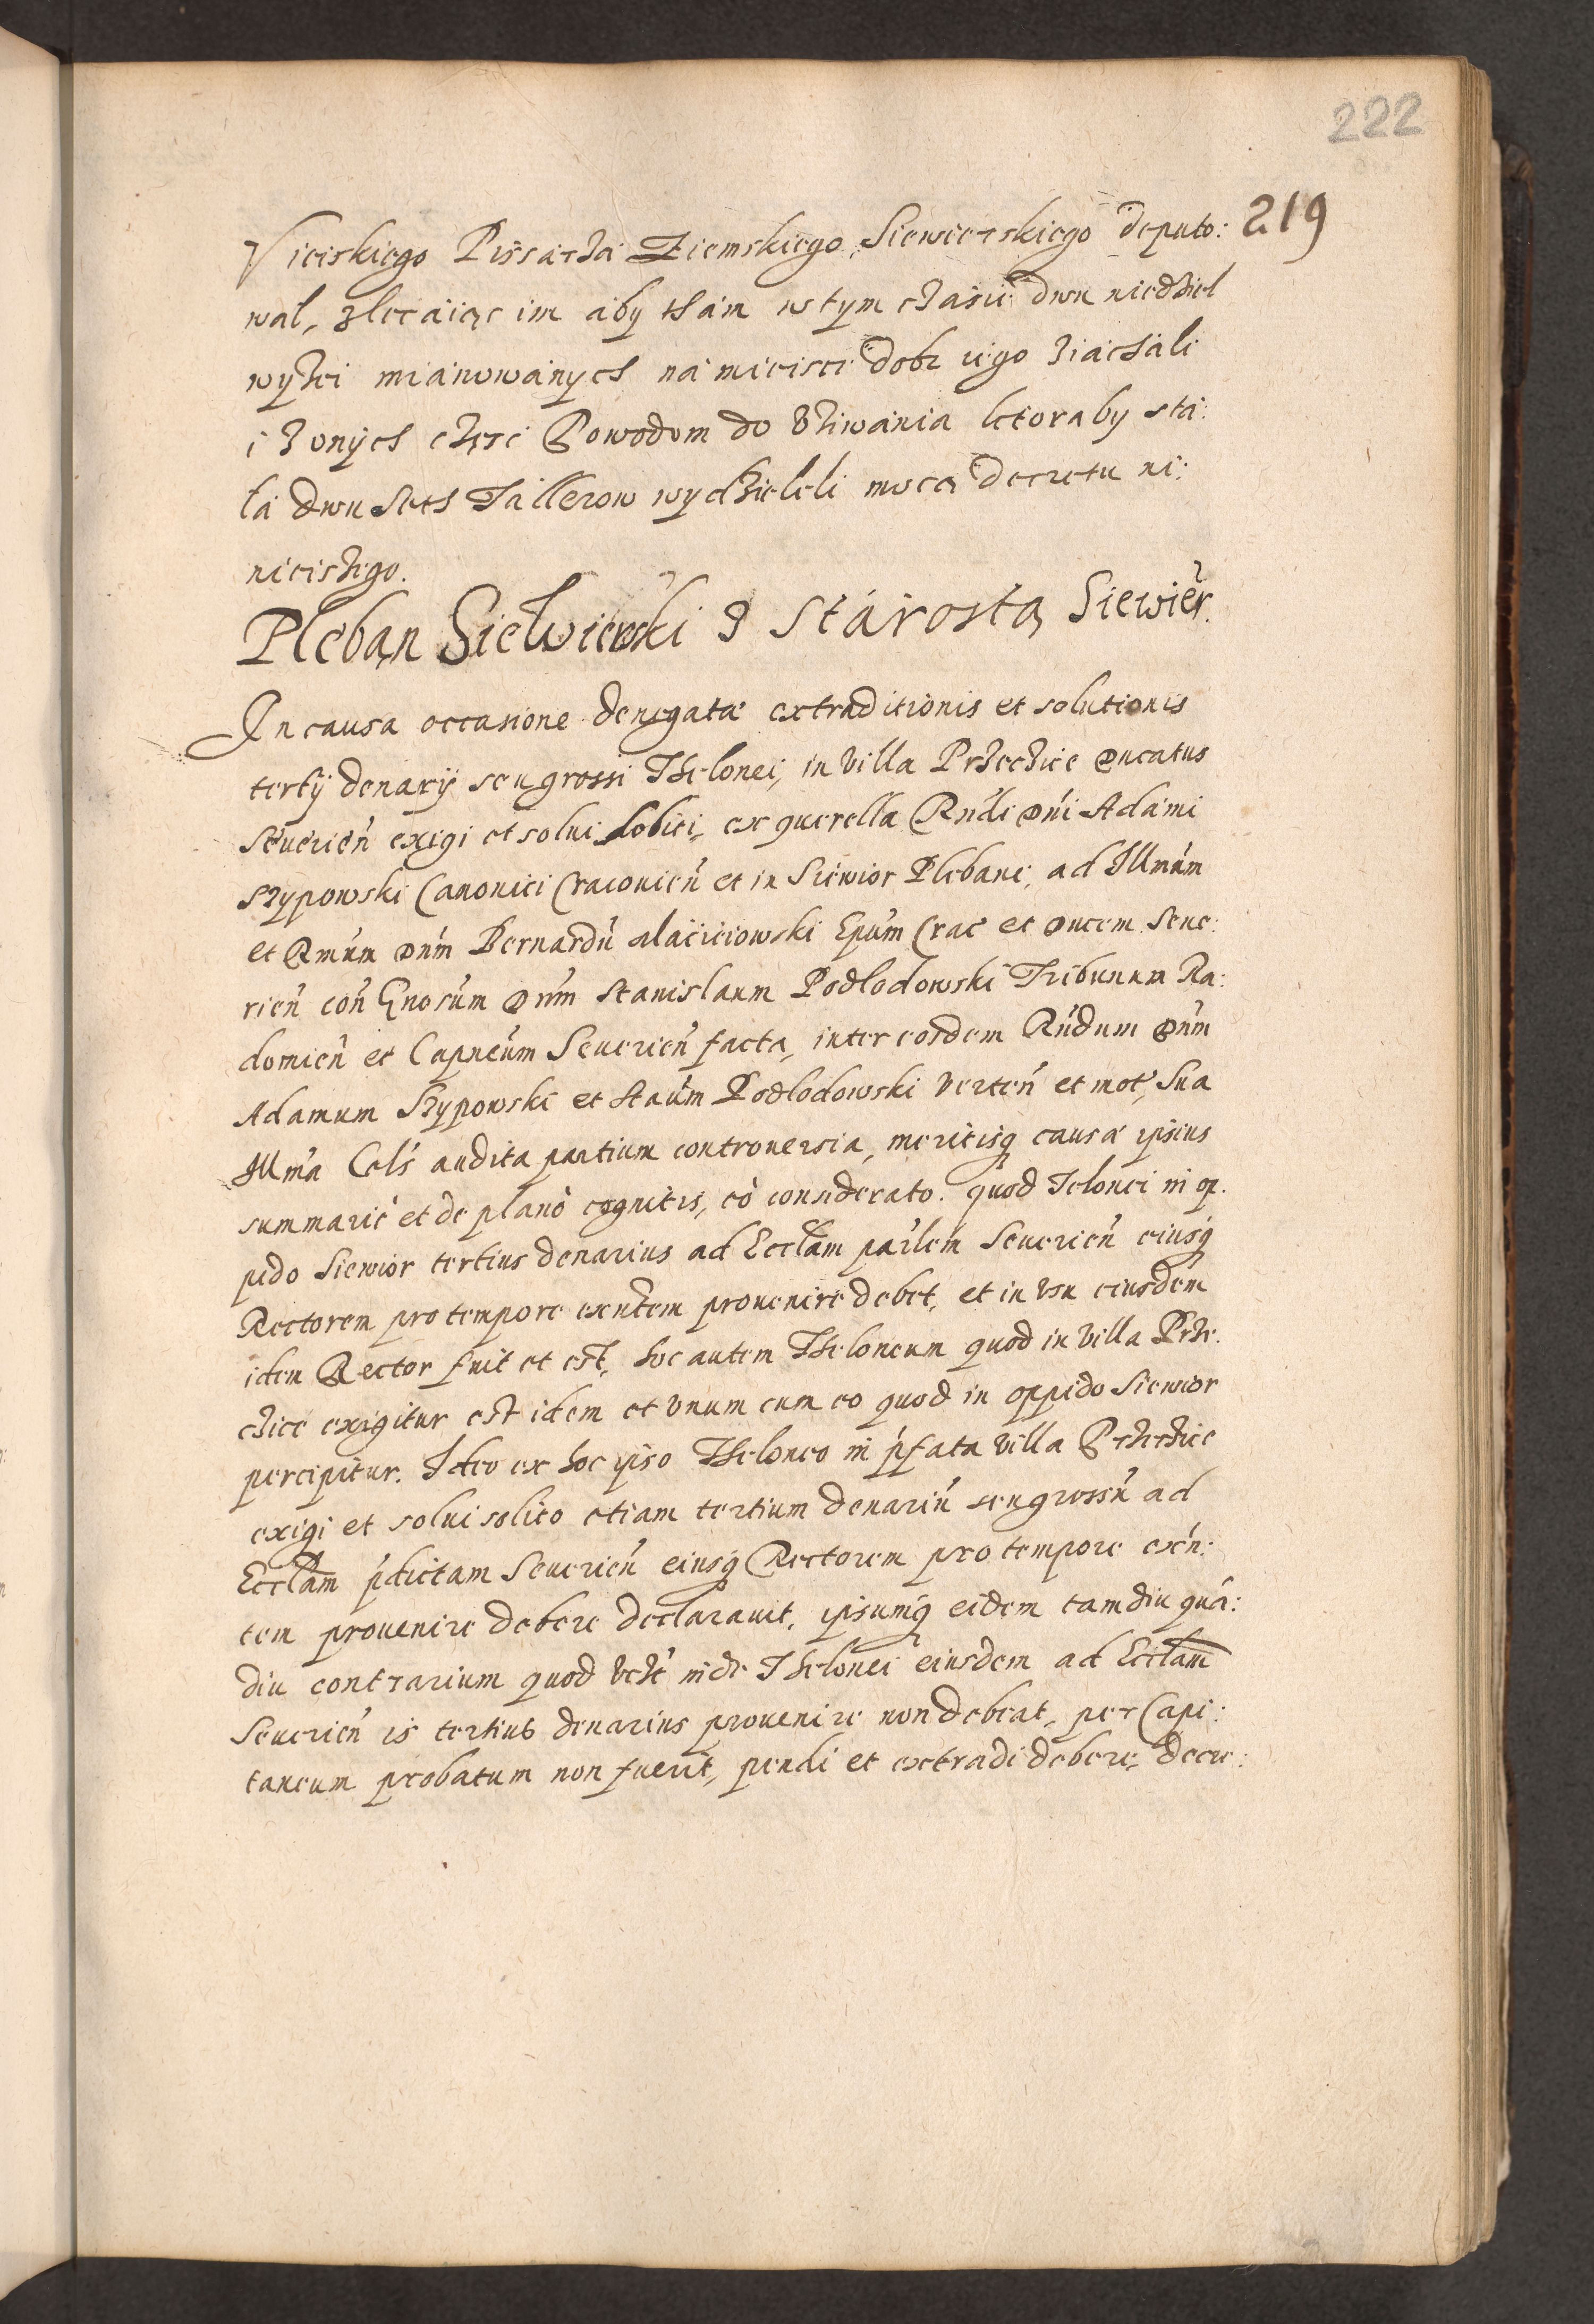 222
219
Vieiskiego Pissarza Ziemskiego Siewierskiego deputo:
wal, zlecaiąc im aby tham w tym czasiie dwu niedziel
wyżei mianowanych na mieisce dobr iego ziachali
i z onych częsc Powodom do vżiwania ktoraby sta:
ła dwu seth Tallerow wydzieleli mocą decretu ni:
nieiszego.
Pleban Siewierski z Starostą Siewier.
In causa occasione denegatæ extraditionis et solutionis
tertÿ denarÿ seu grossi Thelonei, in villa Przeczice Ducatus
Seuerien̄ exigi et solui soliti, ex querella Rn̄di Dn̄i Adami
Rzypowski Canonici Cracouien̄ et in Siewior Plebani, ad Illmūm
et Rmūm Dnūm Bernardū Maciieiowski Epūm Crac̄ et Ducem Seue:
rien̄ con̄ Gnosūm Dnūm Stanislaum Podlodowski Tribunum Ra:
domien̄ et Capneūm Seuerien̄ facta, inter eosdem Rn̄dum Dnūm
Adamum Rzypowski et Staūm Podlodowski verten̄ et mot̄, Sua
Illmā Cels̄ audita partium controuersia, meritisq̨ causæ ipsius
summariè et de planò cognitis, eò considerato. quod Telonei in op.
pido Siewior tertius denarius ad Eccl̄am parlēm Seuerien̄ eiusq̨
Rectorem pro tempore exn̄tem prouenire debet, et in vsu eiusdem
idem Rector fuit et est, hoc autem Theloneum quod in villa Prze.
czice exigitur est idem et vnum cum eo quod in oppido Siewior
percipitur. Ideo ex hoc ipso Theloneo in p̄fata villa Przeczice
exigi et solui solito etiam tertium denariū seu grossū ad
Eccl̄am p̄dictam Seuerien̄ eiusq̨ Rectorem pro tempore exn̄:
tem prouenire debere declarauit, ipsumq̨ eidem tamdiu quā:
diu contrarium quod inde Thelonei eiusdem ad Eccl̄am
Seuerien̄ is tertius denarius prouenire non debeat, per Capi:
taneum probatum non fuerit, pendi et extradi debere, decre: